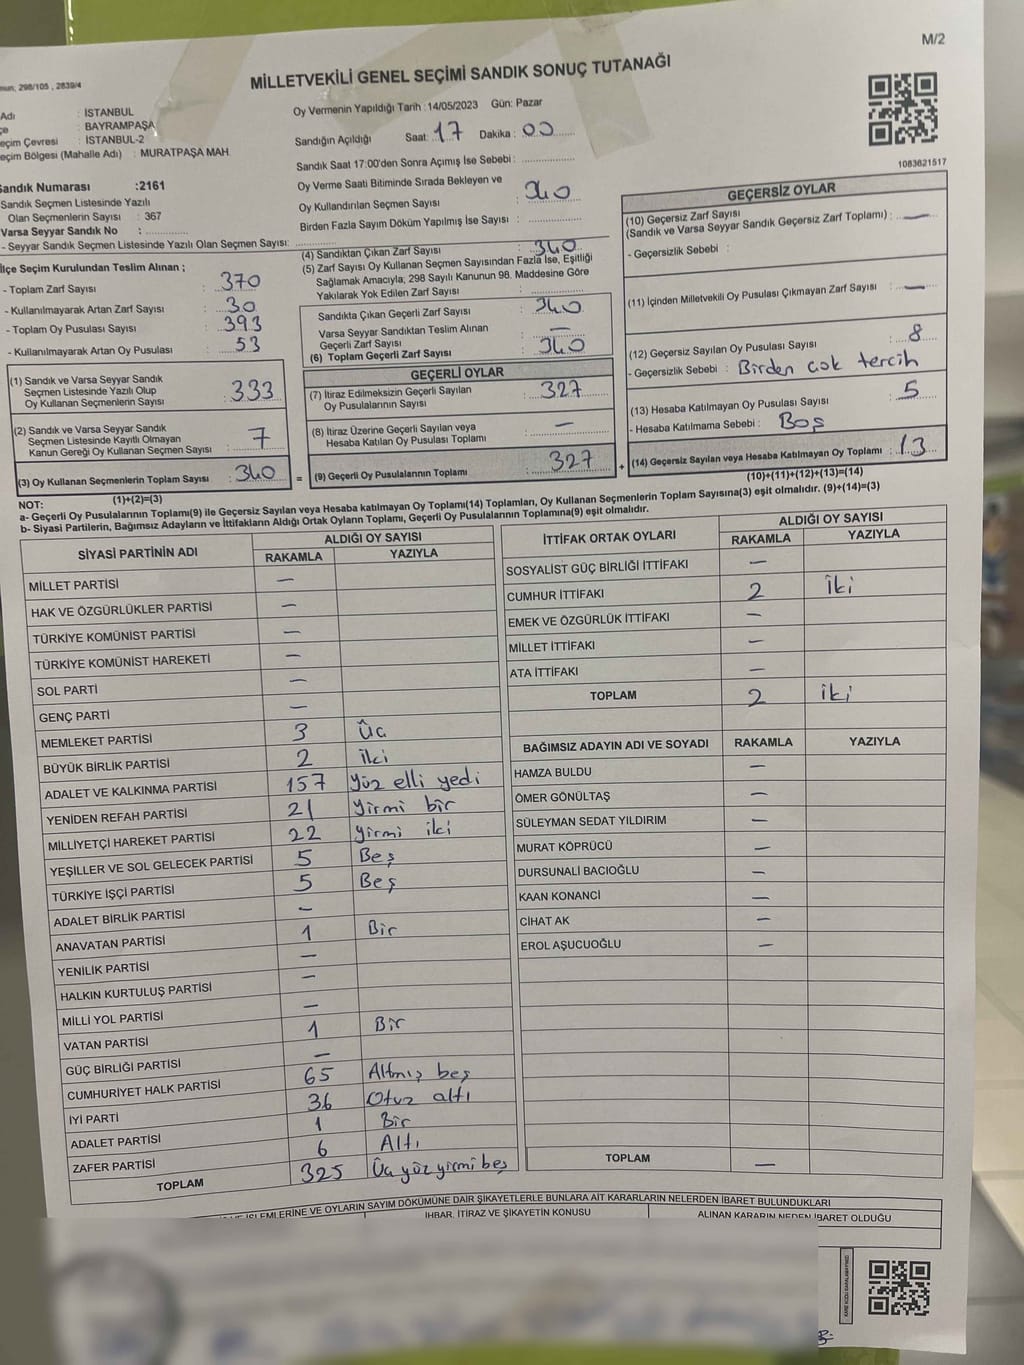 M/2
MİLLETVEKİLİ GENEL SEÇİMİ SANDIK SONUÇ TUTANAĞI
298/105 , 2839/4
Adı : İSTANBUL
: BAYRAMPAŞA
Seçim Çevresi : İSTANBUL-2
Seçim Bölgesi (Mahalle Adı) : MURATPAŞA MAH.
Sandık Numarası :2161
Sandık Seçmen Listesinde Yazılı
Olan Seçmenlerin Sayısı : 367
Varsa Seyyar Sandık No :
- Seyyar Sandık Seçmen Listesinde Yazılı Olan Seçmen Sayısı:
İlçe Seçim Kurulundan Teslim Alınan ;
- Toplam Zarf Sayısı : 370
- Kullanılmayarak Artan Zarf Sayısı : 30
- Toplam Oy Pusulası Sayısı : 393
- Kullanılmayarak Artan Oy Pusulası : 53
(1) Sandık ve Varsa Seyyar Sandık
Seçmen Listesinde Yazılı Olup
Oy Kullanan Seçmenlerin Sayısı : 333
(2) Sandık ve Varsa Seyyar Sandık
Seçmen Listesinde Kayıtlı Olmayan
Kanun Gereği Oy Kullanan Seçmen Sayısı : 7
(3) Oy Kullanan Seçmenlerin Toplam Sayısı : 340
(1)+(2)=(3)
Oy Vermenin Yapıldığı Tarih :14/05/2023 Gün: Pazar
Sandığın Açıldığı Saat: 17 Dakika : 00
Sandık Saat 17:00'den Sonra Açımış İse Sebebi :
Oy Verme Saati Bitiminde Sırada Bekleyen ve
Oy Kullandırılan Seçmen Sayısı : 340
Birden Fazla Sayım Döküm Yapılmış İse Sayısı :
(4) Sandıktan Çıkan Zarf Sayısı : 340
(5) Zarf Sayısı Oy Kullanan Seçmen Sayısından Fazla İse, Eşitliği
Sağlamak Amacıyla; 298 Sayılı Kanunun 98. Maddesine Göre
Yakılarak Yok Edilen Zarf Sayısı :
Sandıkta Çıkan Geçerli Zarf Sayısı : 340
Varsa Seyyar Sandıktan Teslim Alınan
Geçerli Zarf Sayısı : —
(6) Toplam Geçerli Zarf Sayısı : 340
GEÇERLİ OYLAR
(7) İtiraz Edilmeksizin Geçerli Sayılan
Oy Pusulalarının Sayısı : 327
(8) İtiraz Üzerine Geçerli Sayılan veya
Hesaba Katılan Oy Pusulası Toplamı : —
= (9) Geçerli Oy Pusulalarının Toplamı : 327 +
1083621517
GEÇERSİZ OYLAR
(10) Geçersiz Zarf Sayısı
(Sandık ve Varsa Seyyar Sandık Geçersiz Zarf Toplamı) : —
- Geçersizlik Sebebi :
(11) İçinden Milletvekili Oy Pusulası Çıkmayan Zarf Sayısı : —
(12) Geçersiz Sayılan Oy Pusulası Sayısı : 8
- Geçersizlik Sebebi : Birden cok tercih
(13) Hesaba Katılmayan Oy Pusulası Sayısı : 5
- Hesaba Katılmama Sebebi : Boş
(14) Geçersiz Sayılan veya Hesaba Katılmayan Oy Toplamı : 13
(10)+(11)+(12)+(13)=(14)
NOT:
a- Geçerli Oy Pusulalarının Toplamı(9) ile Geçersiz Sayılan veya Hesaba katılmayan Oy Toplamı(14) Toplamları, Oy Kullanan Seçmenlerin Toplam Sayısına(3) eşit olmalıdır. (9)+(14)=(3)
b- Siyasi Partilerin, Bağımsız Adayların ve İttifakların Aldığı Ortak Oyların Toplamı, Geçerli Oy Pusulalarının Toplamına(9) eşit olmalıdır.
SİYASİ PARTİNİN ADI ALDIĞI OY SAYISI
RAKAMLA YAZIYLA
MİLLET PARTİSİ —
HAK VE ÖZGÜRLÜKLER PARTİSİ —
TÜRKİYE KOMÜNİST PARTİSİ —
TÜRKİYE KOMÜNİST HAREKETİ —
SOL PARTİ —
GENÇ PARTİ —
MEMLEKET PARTİSİ 3 Üc
BÜYÜK BİRLİK PARTİSİ 2 İki
ADALET VE KALKINMA PARTİSİ 157 Yüz elli yedi
YENİDEN REFAH PARTİSİ 21 Yirmi bir
MİLLİYETÇİ HAREKET PARTİSİ 22 Yirmi iki
YEŞİLLER VE SOL GELECEK PARTİSİ 5 Beş
TÜRKİYE İŞÇİ PARTİSİ 5 Beş
ADALET BİRLİK PARTİSİ —
ANAVATAN PARTİSİ 1 Bir
YENİLİK PARTİSİ —
HALKIN KURTULUŞ PARTİSİ —
MİLLİ YOL PARTİSİ —
VATAN PARTİSİ 1 Bir
GÜÇ BİRLİĞİ PARTİSİ —
CUMHURİYET HALK PARTİSİ 65 Altmış beş
İYİ PARTİ 36 Otuz altı
ADALET PARTİSİ 1 Bir
ZAFER PARTİSİ 6 Altı
TOPLAM 325 Üc yüz yirmi beş
İTTİFAK ORTAK OYLARI ALDIĞI OY SAYISI
RAKAMLA YAZIYLA
SOSYALİST GÜÇ BİRLİĞİ İTTİFAKI —
CUMHUR İTTİFAKI 2 İki
EMEK VE ÖZGÜRLÜK İTTİFAKI —
MİLLET İTTİFAKI —
ATA İTTİFAKI —
TOPLAM 2 İki
BAĞIMSIZ ADAYIN ADI VE SOYADI RAKAMLA YAZIYLA
HAMZA BULDU —
ÖMER GÖNÜLTAŞ —
SÜLEYMAN SEDAT YILDIRIM —
MURAT KÖPRÜCÜ —
DURSUNALİ BACIOĞLU —
KAAN KONANCİ —
CİHAT AK —
EROL AŞUCUOĞLU —
TOPLAM —
İŞLEMLERİNE VE OYLARIN SAYIM DÖKÜMÜNE DAİR ŞİKAYETLERLE BUNLARA AİT KARARLARIN NELERDEN İBARET BULUNDUKLARI
İHBAR, İTİRAZ VE ŞİKAYETİN KONUSU ALINAN KARARIN NEDEN İBARET OLDUĞU